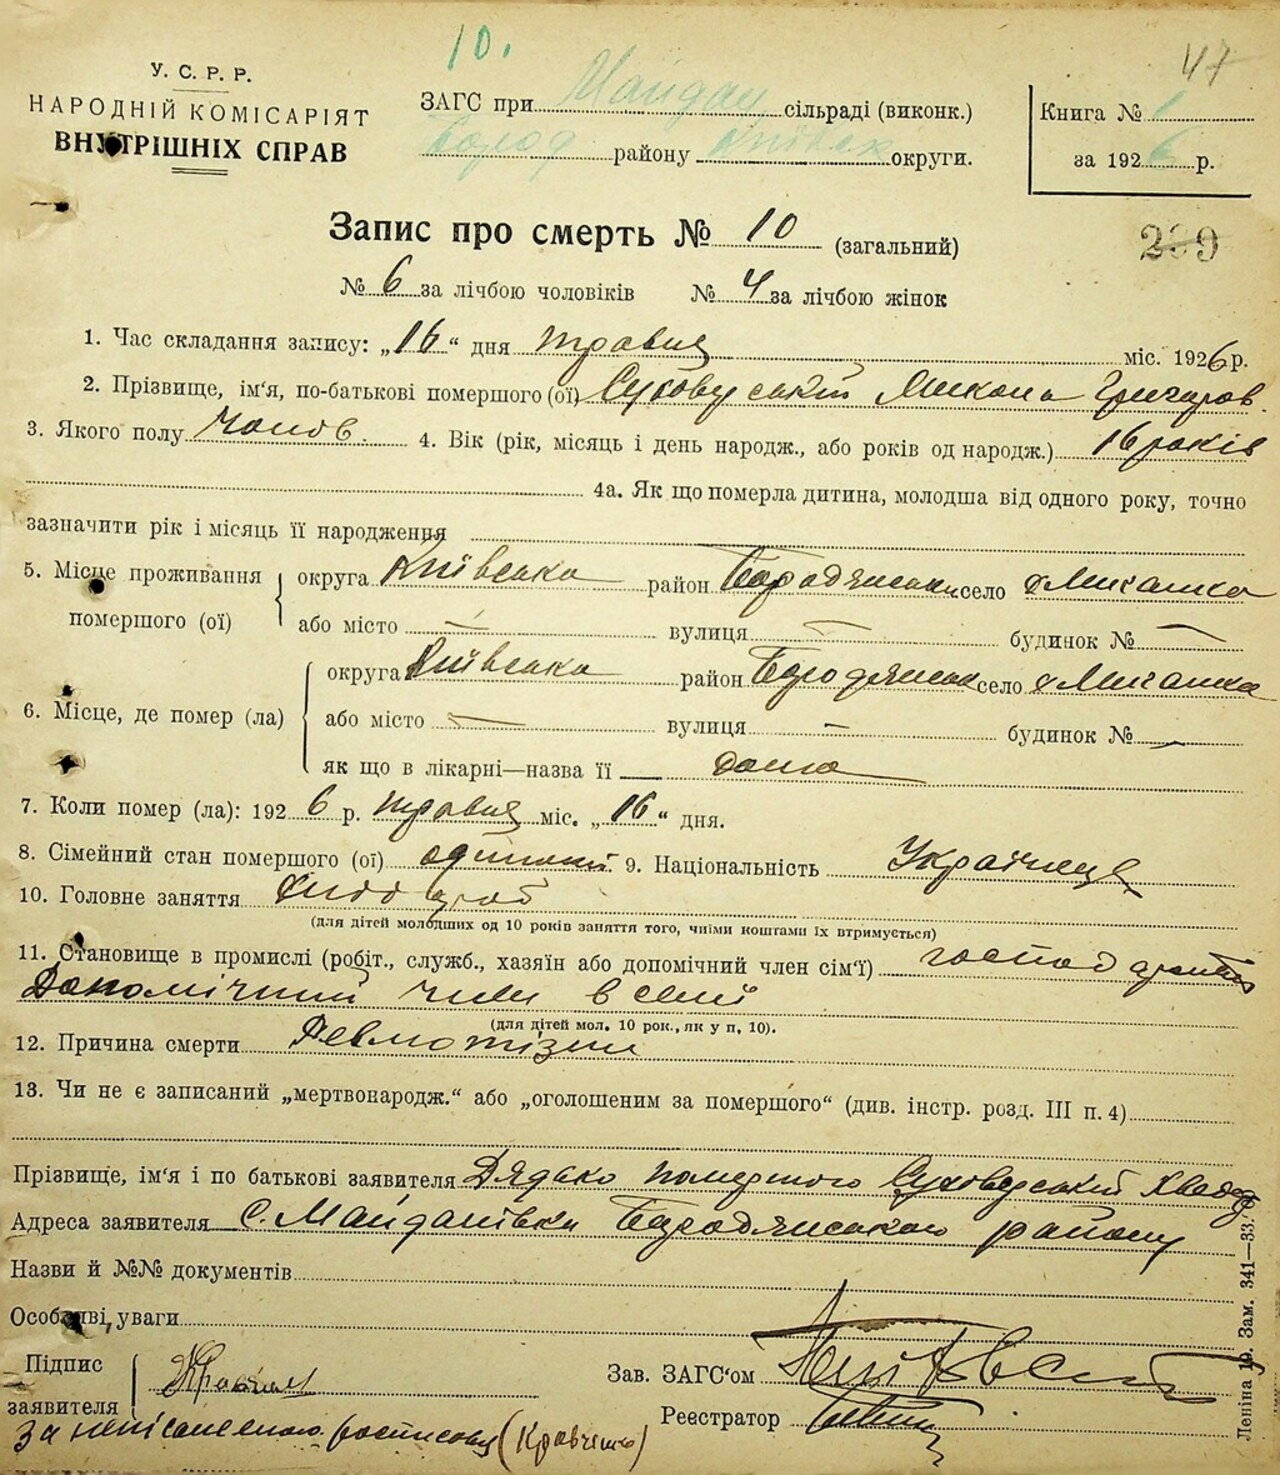 10.
47
У. С. Р. Р.
НАРОДНІЙ КОМІСАРІЯТ
ВНУТРІШНІХ СПРАВ
ЗАГС при Майдан сільраді (виконк.)
Бород району округи.
Книга № 1
за 1926 р.
Запис про смерть № 10 (загальний)
299
№ 6 за лічбою чоловіків № 4 за лічбою жінок
1. Час складання запису: „16“ дня травня міс. 1926 р.
2. Прізвище, ім'я, по-батькові помершого (ої) Микола Григоров.
3. Якого полу Чолов. 4. Вік (рік, місяць і день народж., або років од народж.) 16 років
4а. Як що померла дитина, молодша від одного року, точно
зазначити рік і місяць її народження
5. Місце проживання помершого (ої) округа Київська район Бородянськ село х Микашка
або місто — вулиця — будинок № —
6. Місце, де помер (ла) округа Київська район Бородянськ село х Микашка
або місто — вулиця — будинок № —
як що в лікарні—назва її дома
7. Коли помер (ла): 1926 р. травня міс. „16“ дня.
8. Сімейний стан помершого (ої) одинокий 9. Національність Українець
10. Головне заняття хлібороб
(для дітей молодших од 10 років заняття того, чиїми коштами їх втримується)
11. Становище в промислі (робіт., служб., хазяїн або допомічний член сім'ї)
Допомічний член в сімї
(для дітей мол. 10 рок., як у п. 10).
12. Причина смерти Ревматізм
13. Чи не є записаний „мертвонародж.“ або „оголошеним за помершого“ (див. інстр. розд. III п. 4)
Прізвище, ім'я і по батькові заявителя Дядько помершого
Адреса заявителя с. Майданівка Бородянського району
Назви й №№ документів
Особливі уваги
Підпис заявителя Кравченко
за неписьменного росписовця (Кравченко)
Зав. ЗАГС'ом
Реєстратор
Леніна 19. Зам. 341—33.